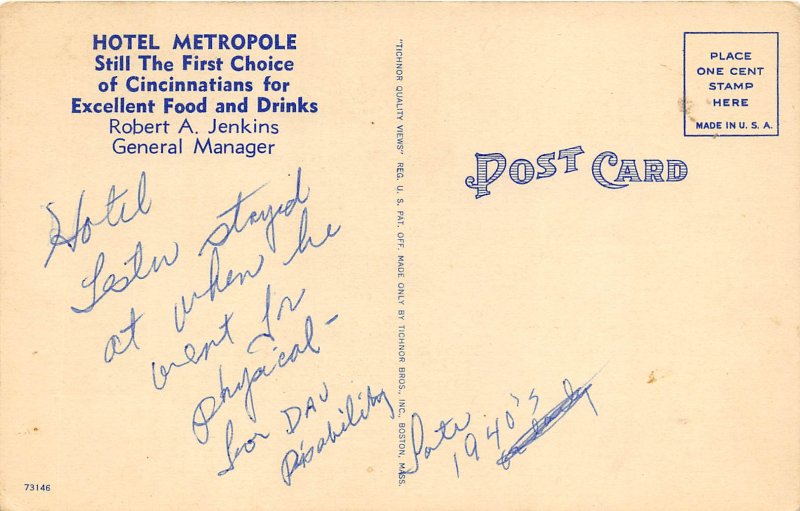 HOTEL METROPOLE
Still The First Choice
of Cincinnatians for
Excellent Food and Drinks
Robert A. Jenkins
General Manager
Hotel
Lester stayed
at when he
went for
physical -
for DAV
Disability
Late
1940's
73146
"TICHNOR QUALITY VIEWS" REG. U. S. PAT. OFF. MADE ONLY BY TICHNOR BROS., INC., BOSTON, MASS.
POST CARD
PLACE
ONE CENT
STAMP
HERE
MADE IN U. S. A.